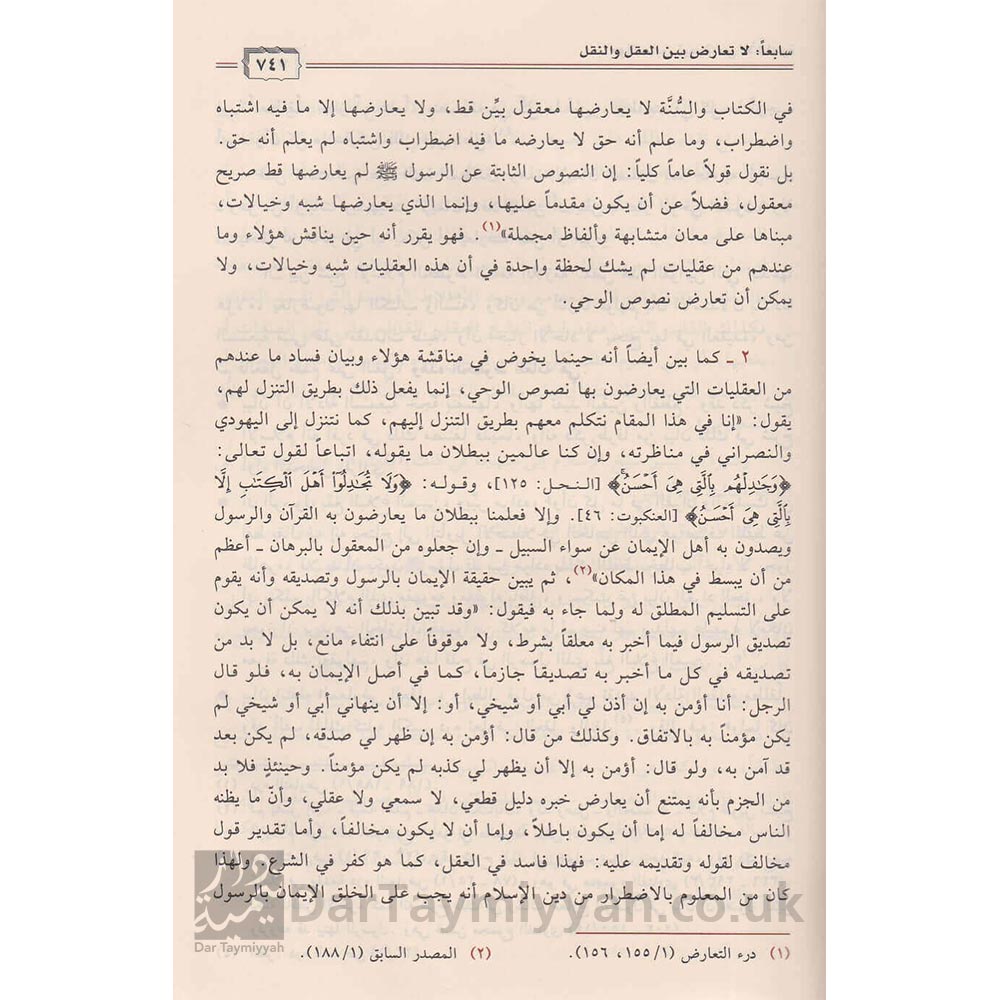 سابعاً: لا تعارض بين العقل والنقل
٧٤١
في الكتاب والسُّنَّة لا يعارضها معقول بيِّن قط، ولا يعارضها إلا ما فيه اشتباه
واضطراب، وما علم أنه حق لا يعارضه ما فيه اضطراب واشتباه لم يعلم أنه حق.
بل نقول قولاً عاماً كلياً: إن النصوص الثابتة عن الرسول ﷺ لم يعارضها قط صريح
معقول، فضلاً عن أن يكون مقدماً عليها، وإنما الذي يعارضها شبه وخيالات،
مبناها على معان متشابهة وألفاظ مجملة»(١). فهو يقرر أنه حين يناقش هؤلاء وما
عندهم من عقليات لم يشك لحظة واحدة في أن هذه العقليات شبه وخيالات، ولا
يمكن أن تعارض نصوص الوحي.
٢ ـ كما بين أيضاً أنه حينما يخوض في مناقشة هؤلاء وبيان فساد ما عندهم
من العقليات التي يعارضون بها نصوص الوحي، إنما يفعل ذلك بطريق التنزل لهم،
يقول: «إنا في هذا المقام نتكلم معهم بطريق التنزل إليهم، كما نتنزل إلى اليهودي
والنصراني في مناظرته، وإن كنا عالمين ببطلان ما يقوله، اتباعاً لقول تعالى:
﴿وَجَٰدِلْهُم بِٱلَّتِى هِىَ أَحْسَنُ﴾ [النحل: ١٢٥]، وقوله: ﴿وَلَا تُجَٰدِلُوٓا۟ أَهْلَ ٱلْكِتَٰبِ إِلَّا
بِٱلَّتِى هِىَ أَحْسَنُ﴾ [العنكبوت: ٤٦]. وإلا فعلمنا ببطلان ما يعارضون به القرآن والرسول
ويصدون به أهل الإيمان عن سواء السبيل ـ وإن جعلوه من المعقول بالبرهان ـ أعظم
من أن يبسط في هذا المكان»(٢)، ثم يبين حقيقة الإيمان بالرسول وتصديقه وأنه يقوم
على التسليم المطلق له ولما جاء به فيقول: «وقد تبين بذلك أنه لا يمكن أن يكون
تصديق الرسول فيما أخبر به معلقاً بشرط، ولا موقوفاً على انتفاء مانع، بل لا بد من
تصديقه في كل ما أخبر به تصديقاً جازماً، كما في أصل الإيمان به، فلو قال
الرجل: أنا أؤمن به إن أذن لي أبي أو شيخي، أو: إلا أن ينهاني أبي أو شيخي لم
يكن مؤمناً به بالاتفاق. وكذلك من قال: أؤمن به إن ظهر لي صدقه، لم يكن بعد
قد آمن به، ولو قال: أؤمن به إلا أن يظهر لي كذبه لم يكن مؤمناً. وحينئذٍ فلا بد
من الجزم بأنه يمتنع أن يعارض خبره دليل قطعي، لا سمعي ولا عقلي، وأنّ ما يظنه
الناس مخالفاً له إما أن يكون باطلاً، وإما أن لا يكون مخالفاً، وأما تقدير قول
مخالف لقوله وتقديمه عليه: فهذا فاسد في العقل، كما هو كفر في الشرع. ولهذا
كان من المعلوم بالاضطرار من دين الإسلام أنه يجب على الخلق الإيمان بالرسول
DarTaymiyyah.co.uk
Dar Taymiyyah
(١) درء التعارض (١/ ١٥٥، ١٥٦).
(٢) المصدر السابق (١/ ١٨٨).